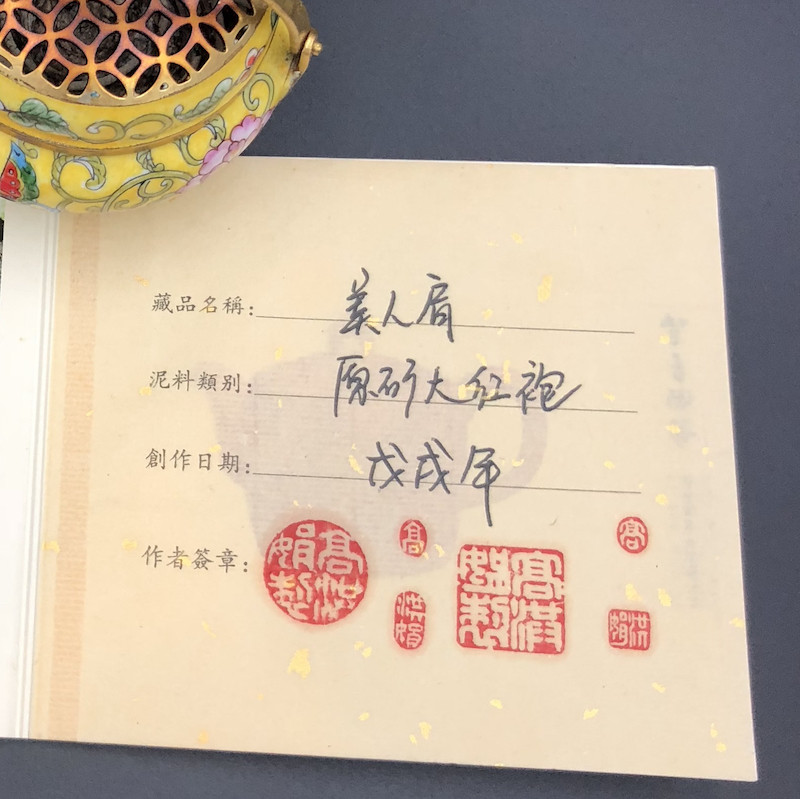 藏品名稱：美人肩
泥料類別：原矿大红袍
創作日期：戊戌年
作者簽章：
高洪娟製
高
洪娟
高洪娟製
高
洪娟